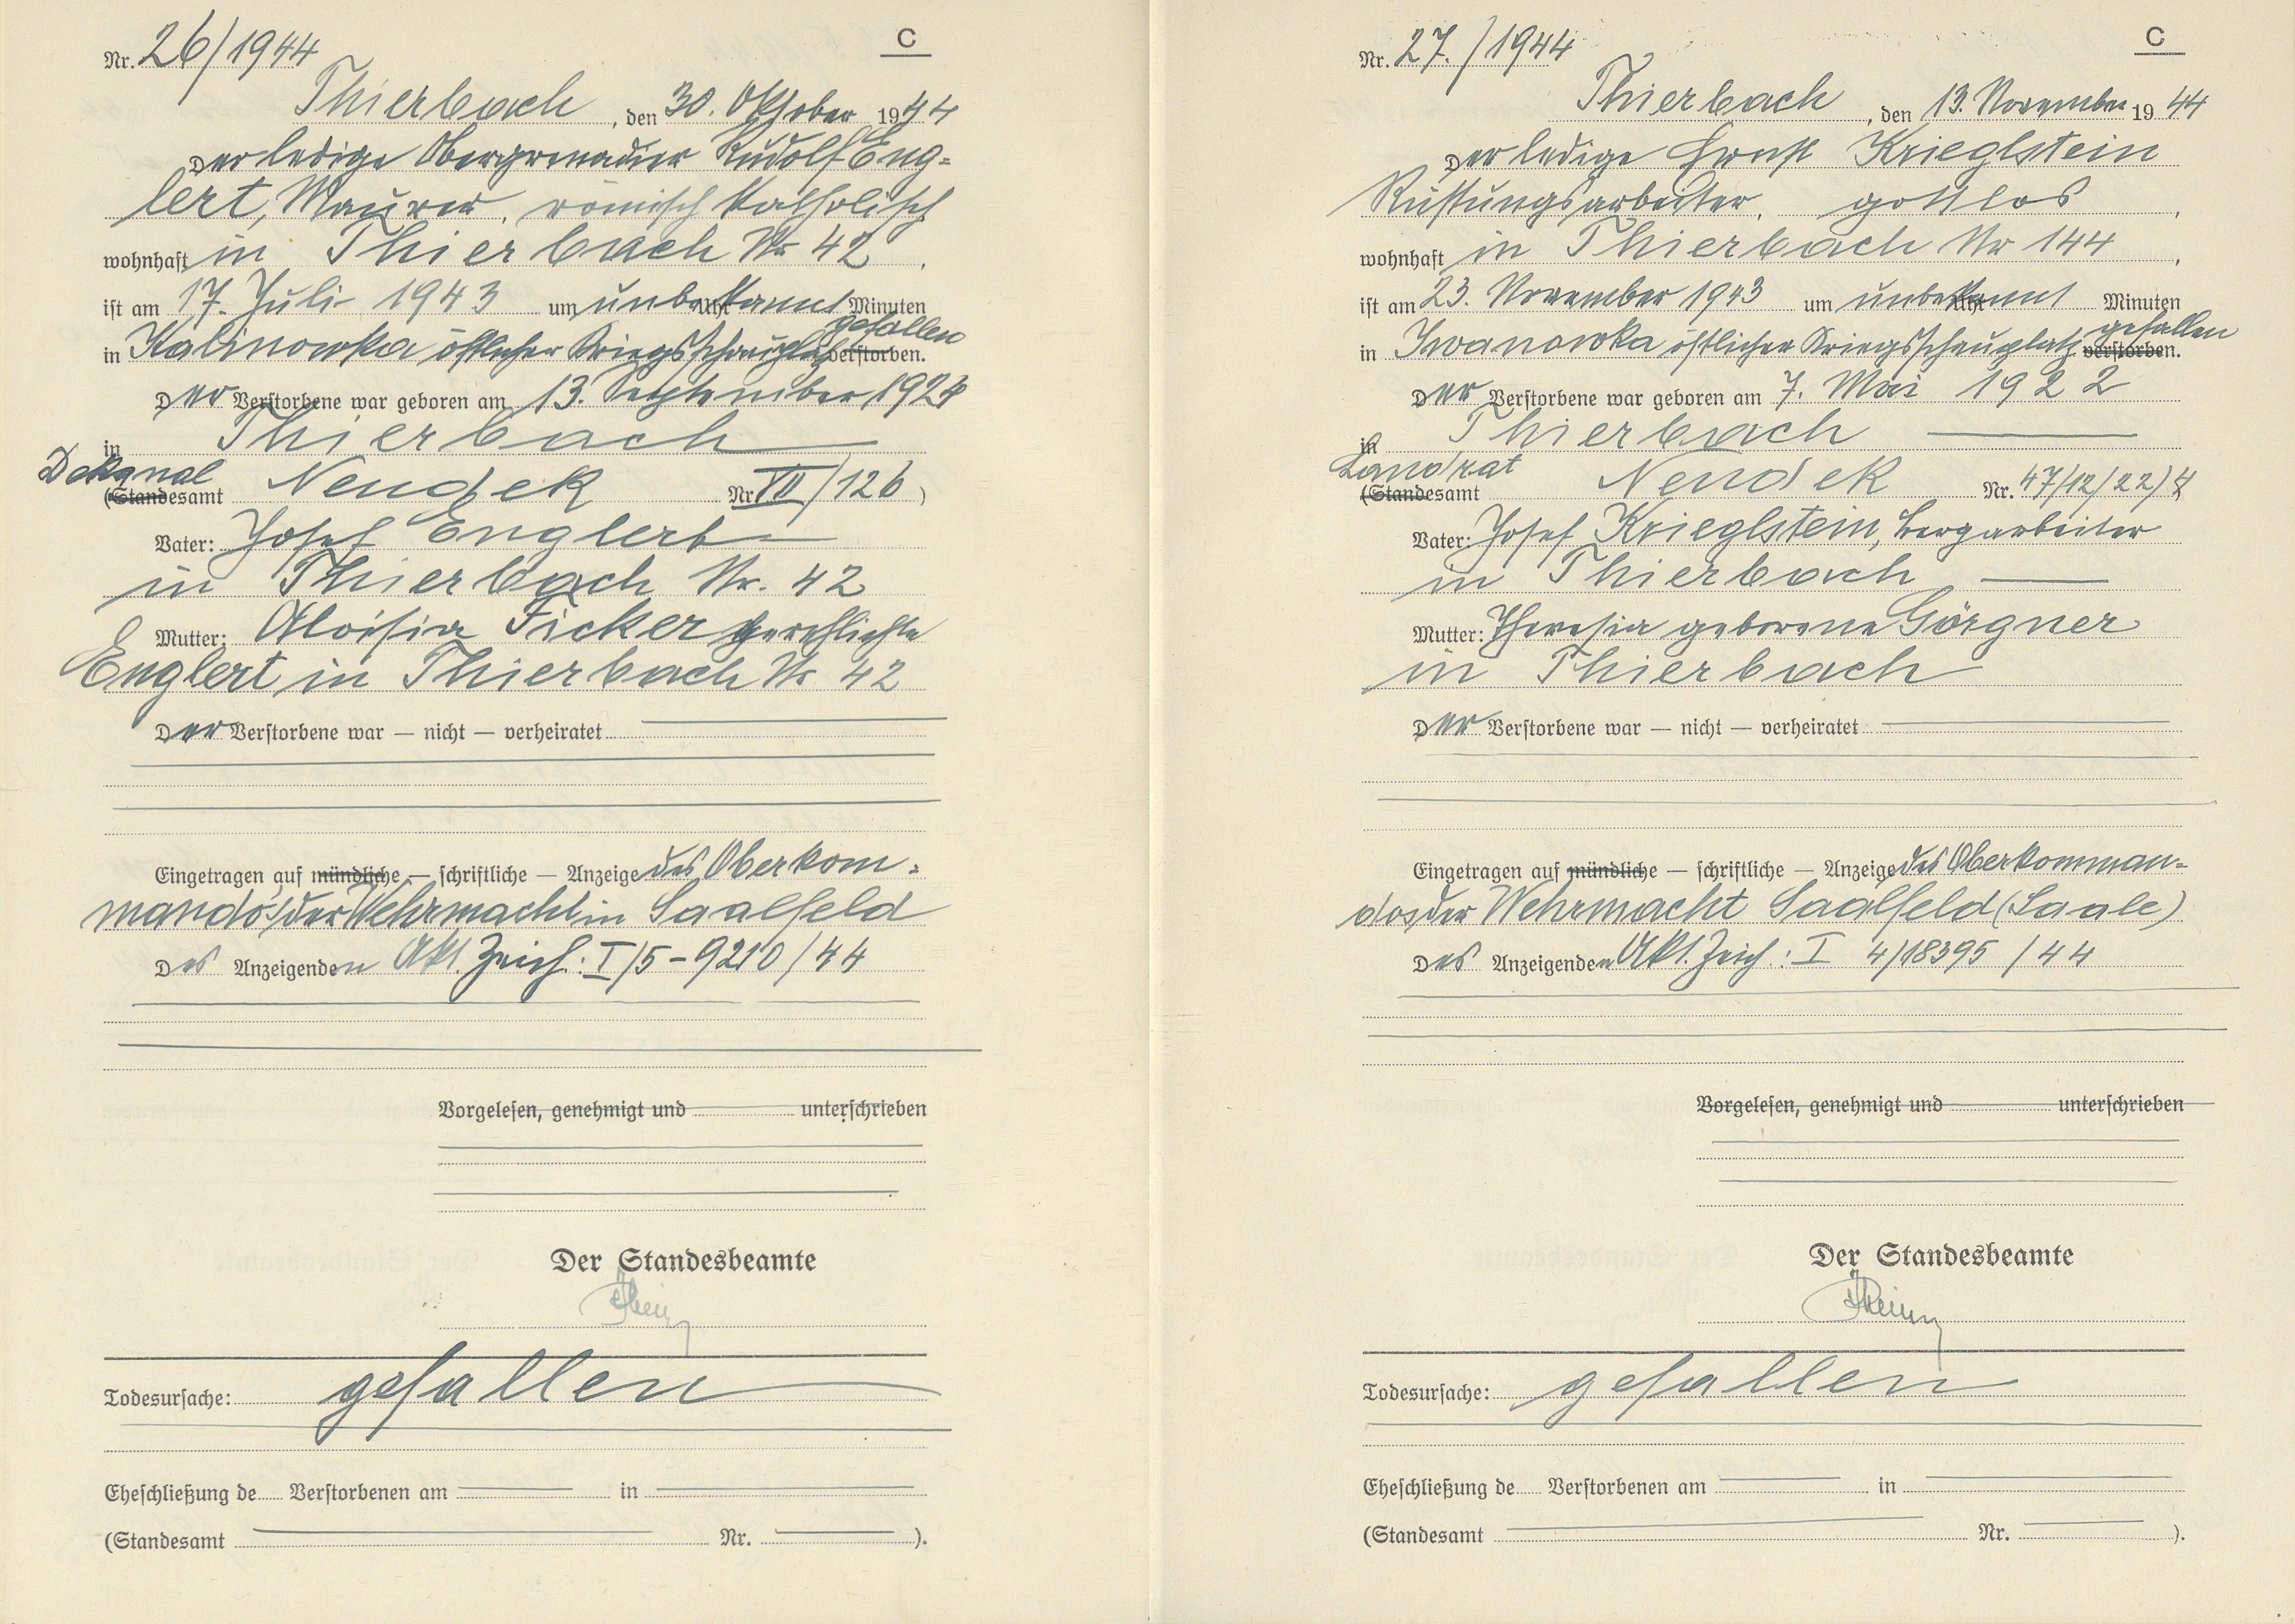 C
Nr. 26/1944
Thierbach, den 30. Oktober 1944
Der ledige Obergrenadier Rudolf Eng-
lert, Maurer, römisch katholisch
wohnhaft in Thierbach Nr 42.
ist am 17. Juli 1943 um unbekannt Uhr Minuten
gefallen
in Kalinowka östlicher Kriegsschauplatz verstorben.
Der Verstorbene war geboren am 13. September 1924
in Thierbach
Dekanal
(Standesamt Neudek Nr. VII/126)
Vater: Josef Englert
in Thierbach Nr. 42
Mutter: Aloisia Ficker verehlichte
Englert in Thierbach Nr 42
Der Verstorbene war — nicht — verheiratet
Eingetragen auf mündliche — schriftliche — Anzeige des Oberkom-
mandos der Wehrmacht in Saalfeld
Des Anzeigenden Akt. Zeich: I/5-9210/44
Vorgelesen, genehmigt und unterschrieben
Der Standesbeamte
Todesursache: gefallen
Eheschließung de Verstorbenen am in
(Standesamt Nr. ).
C
Nr. 27./1944
Thierbach, den 13. November 1944
Der ledige Ernst Krieglstein
Rüstungsarbeiter, gottlos,
wohnhaft in Thierbach Nr 144,
ist am 23. November 1943 um unbekannt Uhr Minuten
gefallen
in Iwanowka östlicher Kriegsschauplatz verstorben.
Der Verstorbene war geboren am 7. Mai 1922
in Thierbach
Landrat
(Standesamt Neudek Nr. 47/12/22/
Vater: Josef Krieglstein, Bergarbeiter
in Thierbach
Mutter: Theresia geborene Görgner
in Thierbach
Der Verstorbene war — nicht — verheiratet
Eingetragen auf mündliche — schriftliche — Anzeige des Oberkomman-
dos der Wehrmacht Saalfeld (Saale)
Des Anzeigenden Akt. Zeich: I 4/18395/44
Vorgelesen, genehmigt und unterschrieben
Der Standesbeamte
Todesursache: gefallen
Eheschließung de Verstorbenen am in
(Standesamt Nr. ).